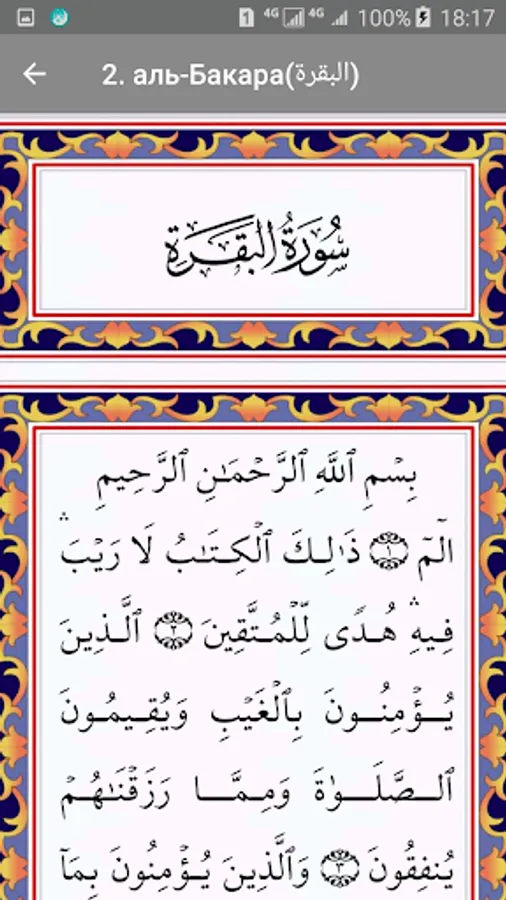 1 4G 4G 100% 18:17
2. аль-Бакара(البقرة)
سُورَةُ البَقَرَةِ
بِسْمِ ٱللَّهِ ٱلرَّحْمَـٰنِ ٱلرَّحِيمِ
الٓمٓ ۝١ ذَٰلِكَ ٱلْكِتَـٰبُ لَا رَيْبَ ۛ
فِيهِ ۛ هُدًى لِّلْمُتَّقِينَ ۝٢ ٱلَّذِينَ
يُؤْمِنُونَ بِٱلْغَيْبِ وَيُقِيمُونَ
ٱلصَّلَوٰةَ وَمِمَّا رَزَقْنَـٰهُمْ
يُنفِقُونَ ۝٣ وَٱلَّذِينَ يُؤْمِنُونَ بِمَآ